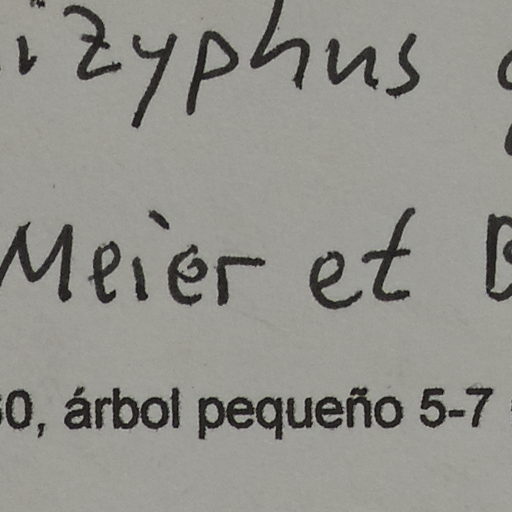 izyphus
Meier et B
60, árbol pequeño 5-7